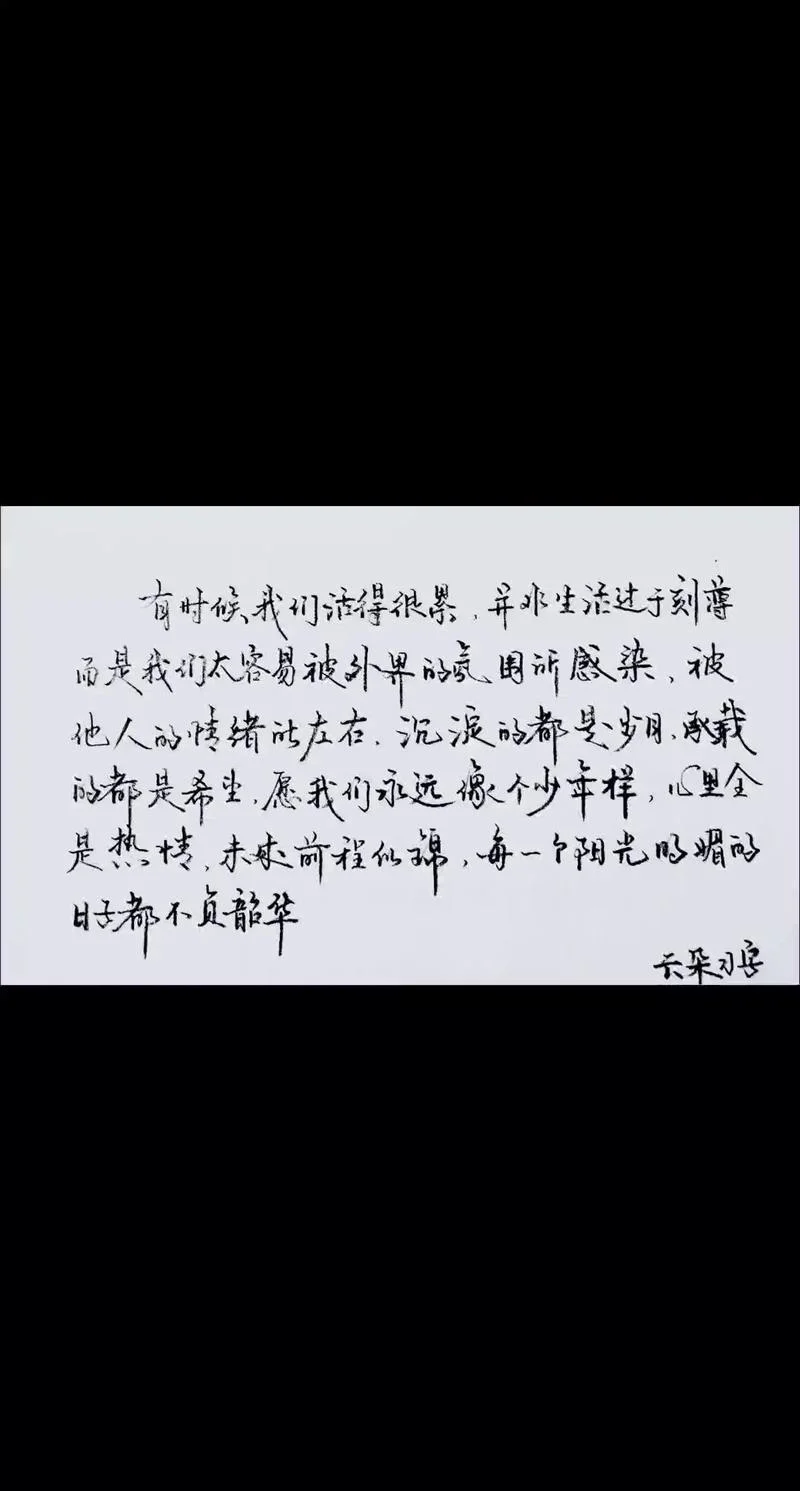 有时候我们活得很累，并非生活过于刻薄
而是我们太容易被外界的氛围所感染，被
他人的情绪所左右，沉淀的都是岁月，承载
的都是希望，愿我们永远像个少年样，心里全
是热情，未来前程似锦，每一个阳光明媚的
日子都不负韶华
云朵习字